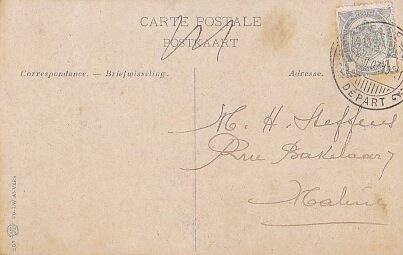 CARTE POSTALE
POSTKAART
Correspondance. — Briefwisseling.
Adresse.
DEPART
M. H. Steffens
Rue
Malines